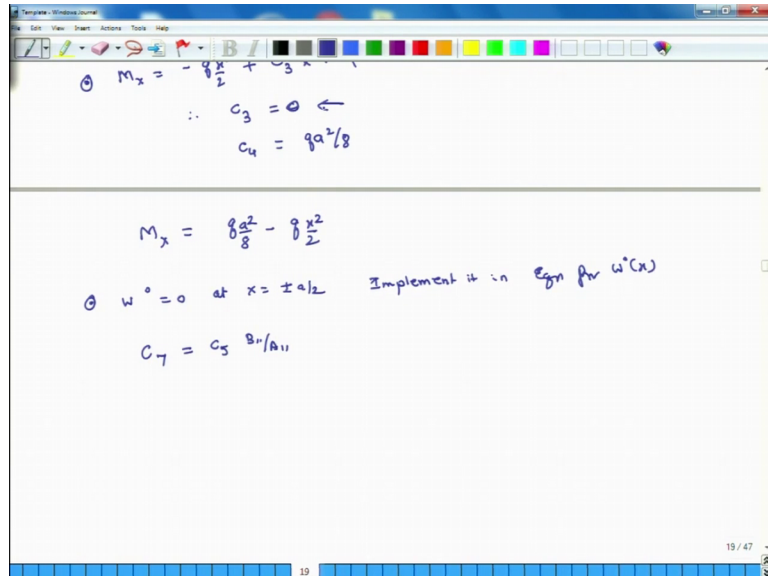 Template - Windows Journal
File Edit View Insert Actions Tools Help
B I
⊙ Mx = - q x²/2 + C3 x
∴ C3 = 0 ←
C4 = qa²/8
Mx = q a²/8 - q x²/2
⊙ w° = 0 at x = ± a/2 Implement it in Eqn for w°(x)
C7 = C5 B11/A11
19 / 47
19